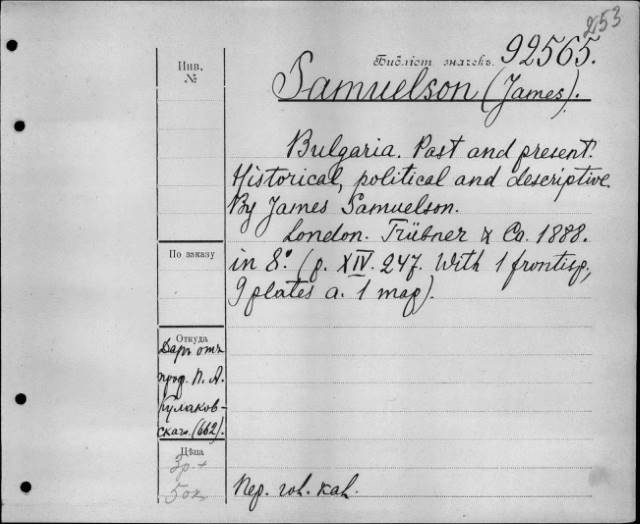 253
Инв. №
Библіот. значекъ. 92565.
Samuelson (James).
Bulgaria. Past and present.
Historical, political and descriptive.
By James Samuelson.
London. Trübner & Co. 1888.
По заказу
in 8.° (p. XIV. 247. With 1 frontisp.,
9 plates a. 1 map).
Откуда
Даръ отъ
проф. П. А.
Кулаков-
скаго. (662).
Цѣна
3р.
5 ок.
Пер. кал.